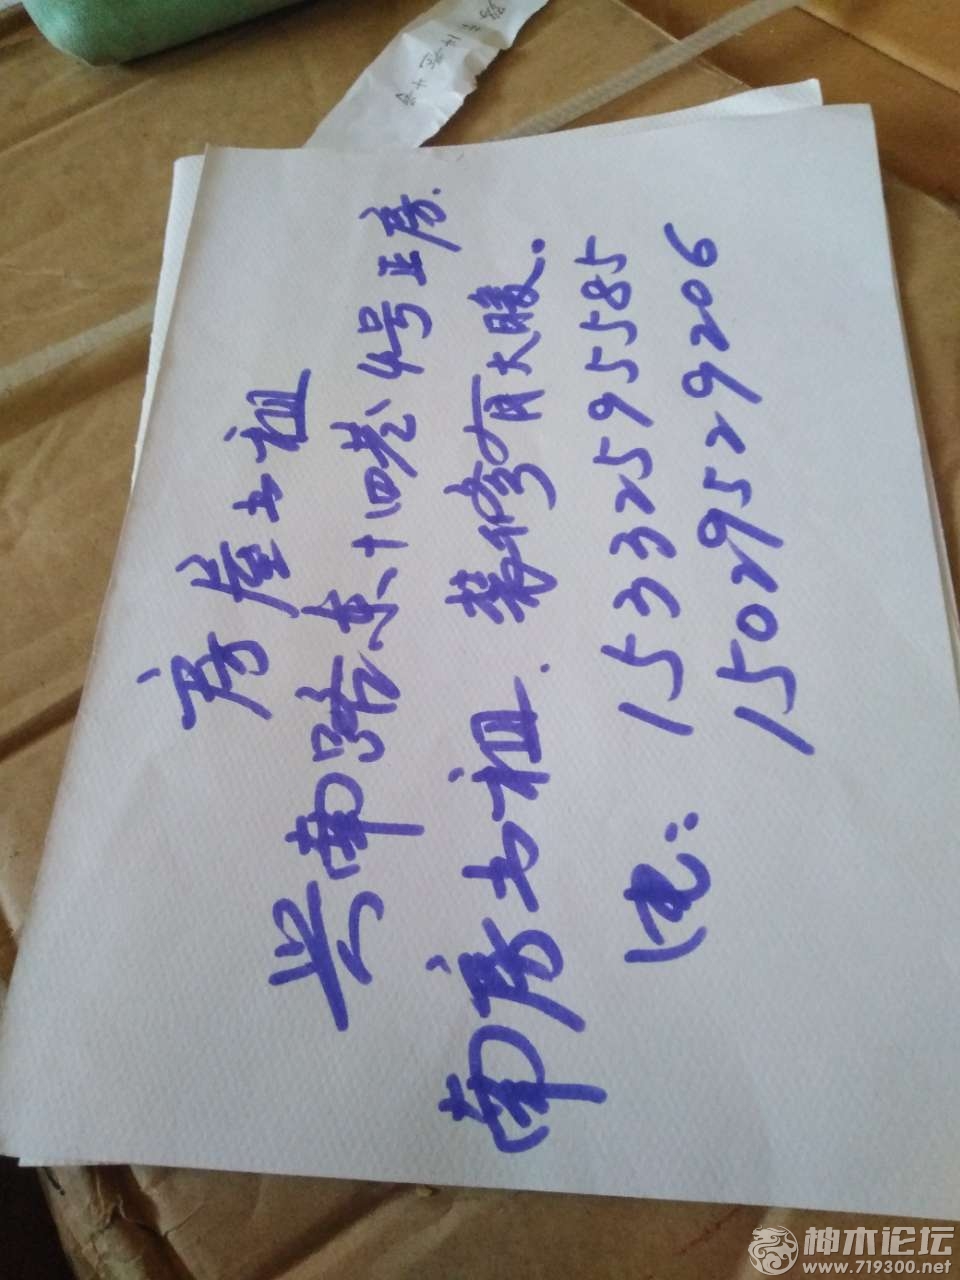 房屋出租
兴南路东十四巷4号正房.
南房出租. 装修有大暖.
电: 15332595585
15029529206
神木论坛
www.719300.net